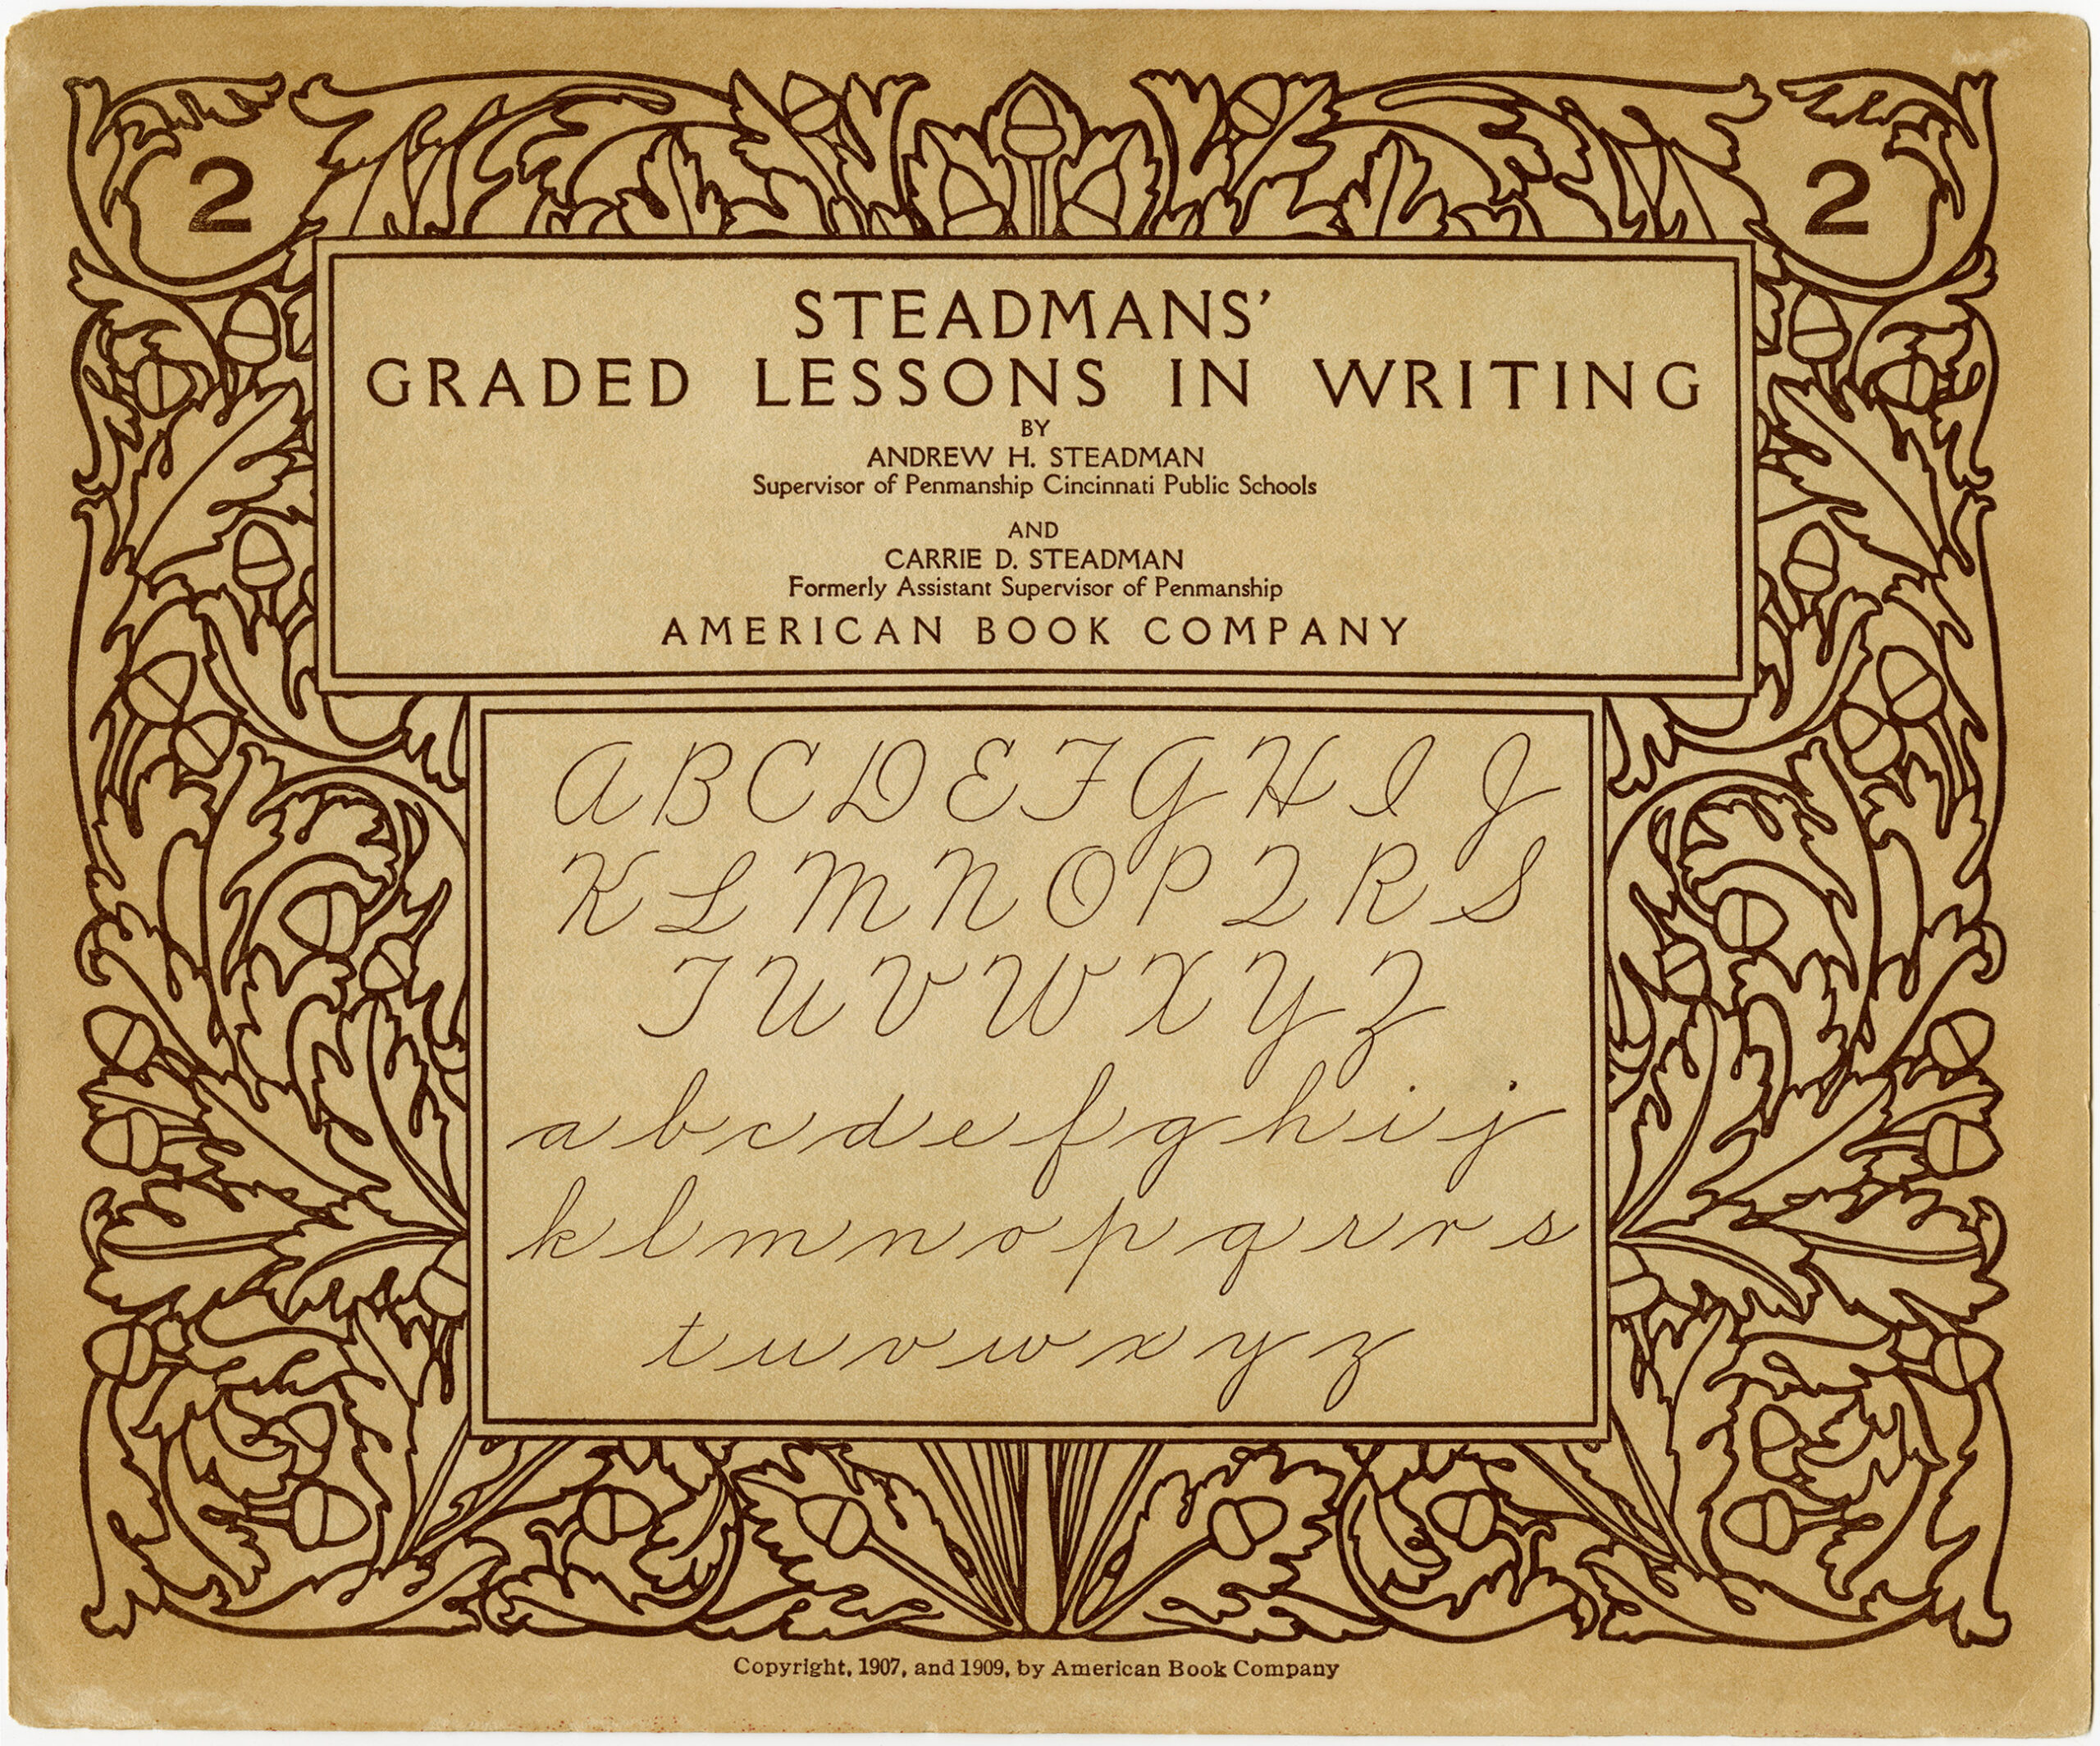 2 2
STEADMANS'
GRADED LESSONS IN WRITING
BY
ANDREW H. STEADMAN
Supervisor of Penmanship Cincinnati Public Schools
AND
CARRIE D. STEADMAN
Formerly Assistant Supervisor of Penmanship
AMERICAN BOOK COMPANY
A B C D E F G H I J
K L M N O P Q R S
T U V W X Y Z
a b c d e f g h i j
k l m n o p q r r s
t u v w x y z
Copyright, 1907, and 1909, by American Book Company